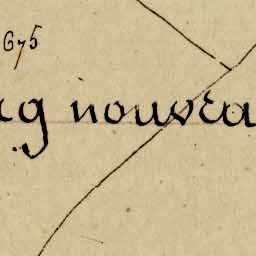 675
ug nouvea